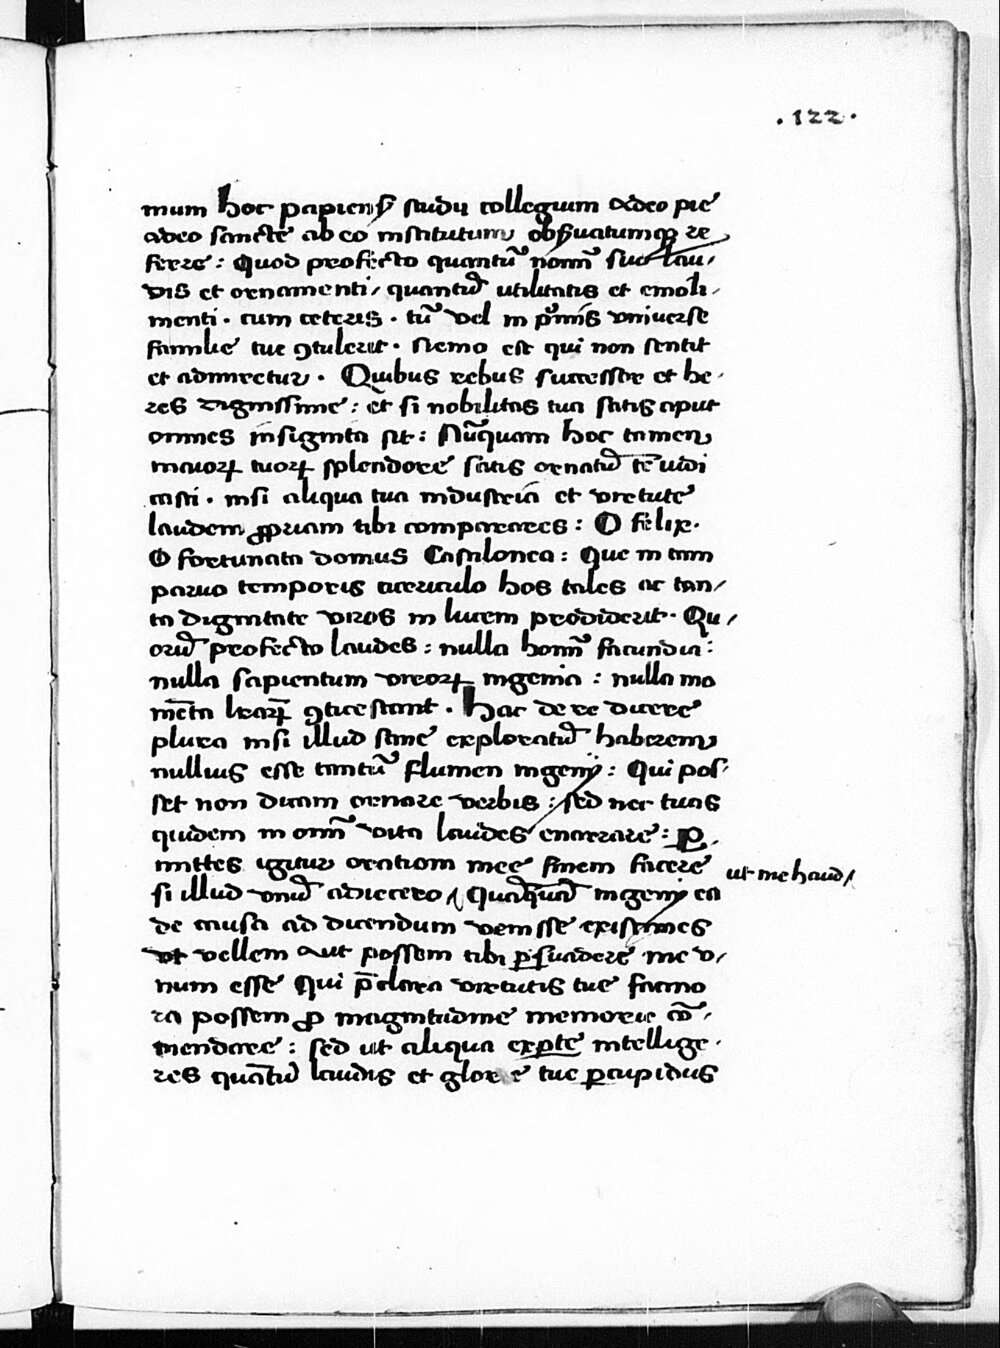 .122.
mum hoc papiensis studij collegium adeo pie
adeo sancte ab eo institutum obseruatumqz re
ferre : Quod profecto quantũ nomĩ suo lau/
dis et ornamenti / quantũ utilitatis et emoli-
menti . cum ceteris . tũ vel in prĩmis vniuerse
familie tue ꝯtulerit . Nemo est qui non sentit
et admiretur . Quibus rebus successor et he-
res dignissime : et si nobilitas tua satis aput
omnes insignita sit : Nũquam hoc tamen
maioꝝ tuoꝝ splendore satis ornatũ te uidi
casti . nisi aliqua tua industria et virtute
laudem ꝓpriam tibi comparares : O felix .
O fortunata domus Castilonea : Que in tam
paruo temporis curriculo hos tales ac tan/
ta dignitate viros in lucem prodiderit . Qu/
orũ profecto laudes : nulla homĩ facundia :
nulla sapientum viroꝝ ingenia : nulla mo
nimẽta lr̃aꝝ ꝯticescant . Hac de re dicere
plura nisi illud sane exploratũ haberem
nullius esse tantũ flumen ingenij : Qui pos-
set non dicam ornare verbis : sed nec tuas
quidem in omĩ vita laudes enarrare : ꝑ
mittes igitur orationi mee finem facere
si illud vnũ adiecero / Quãquã ingenij ea
ut me haud /
de causa ad dicendum venisse existimes
vt vellem aut possem tibi ꝑsuadere me v/
num esse Qui p̃clara virtutis tue facino
ra possem ꝓ magnitudine memorie cõ-
mendare : sed ut aliqua ex ꝑte intellige-
res quãtũ laudis et glorie tue ꝑcupidus